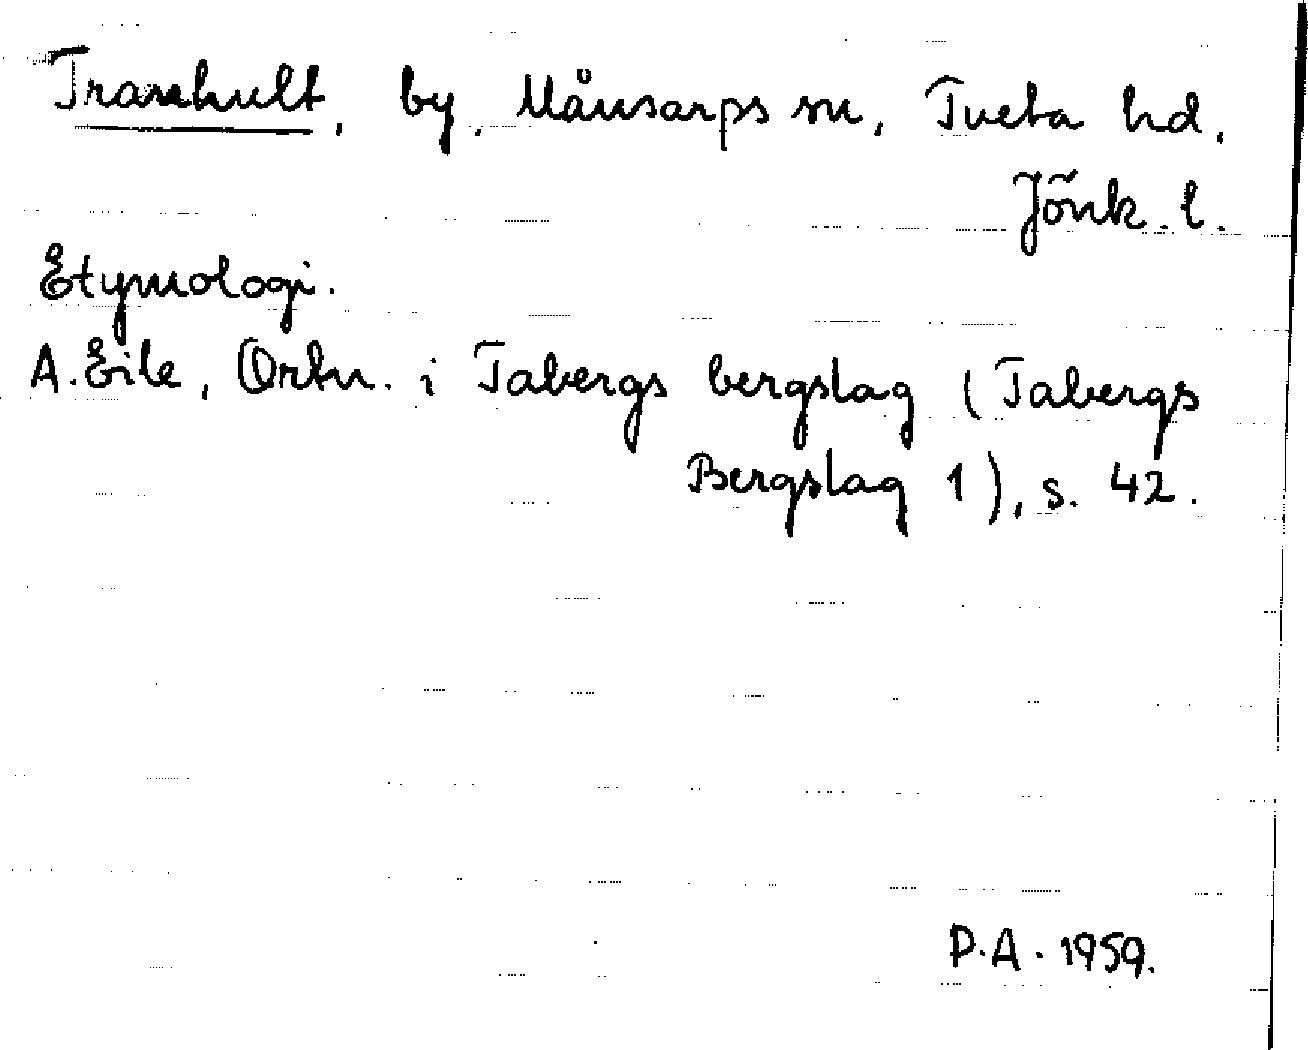 Tranhult, by, Månsarps sn, Tveta hd.
Jönk. l.
Etymologi.
A. Eile, Ortn. i Tabergs bergslag (Tabergs
Bergslag 1), s. 42.
P.A. 1959.